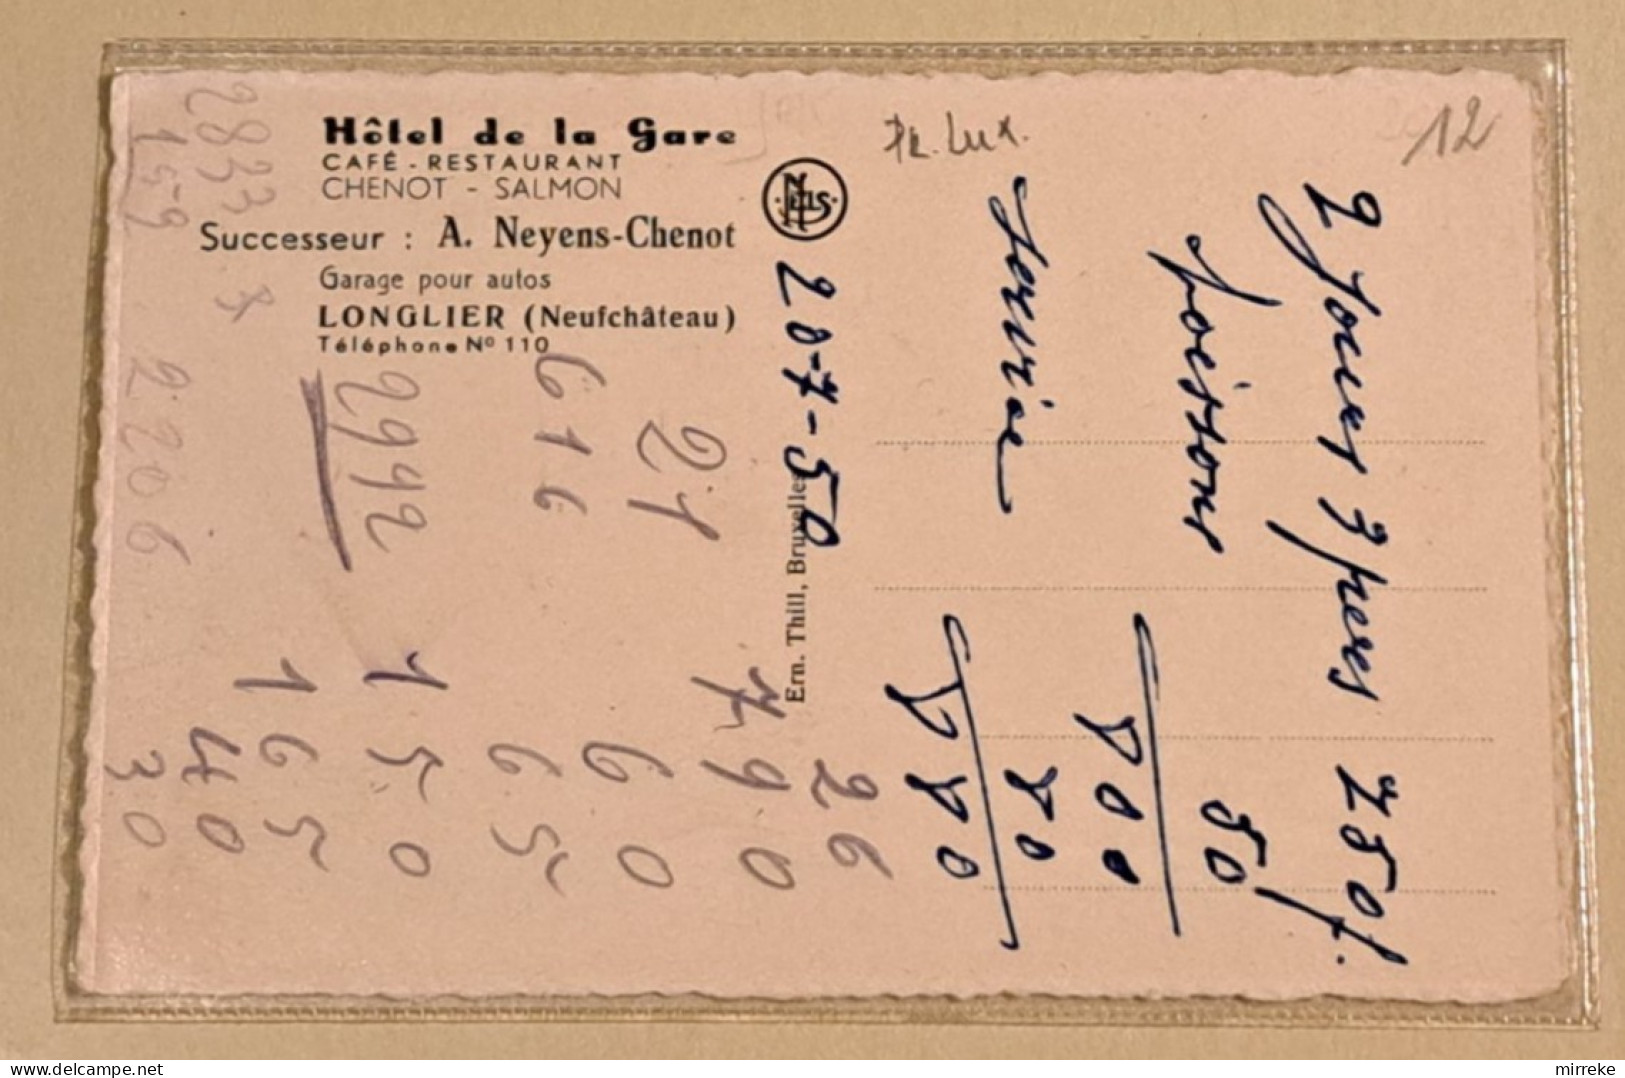 Hôtel de la Gare
CAFÉ - RESTAURANT
CHENOT - SALMON
Successeur : A. Neyens-Chenot
Garage pour autos
LONGLIER (Neufchâteau)
Téléphone Nº 110
NELS
Ern. Thill, Bruxelles
Pr. Lux.
12
2 jours 3 pers 750f.
boissons 50
800
Service 80
880
20-7-50
26
790
60
21
665
616
150
2942
165
40
30
2833
159
2206
mirreke